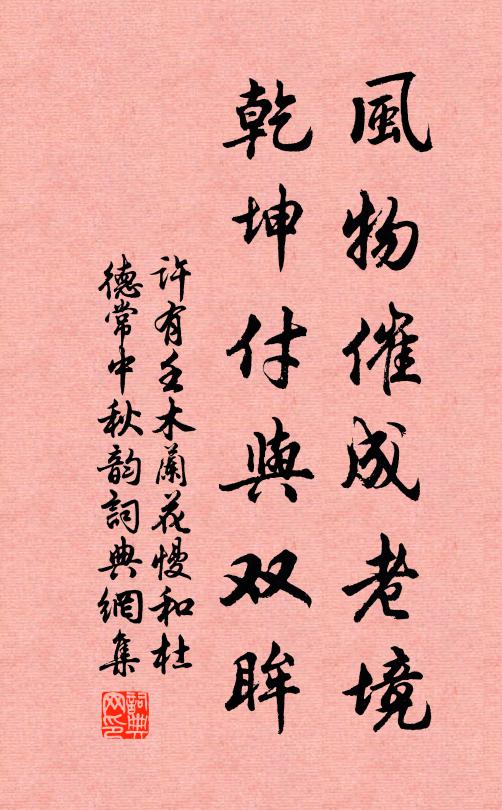 風物催成老境
乾坤付與双眸
許有壬木蘭花慢和杜
德常中秋韵詞典網集
詞典網印